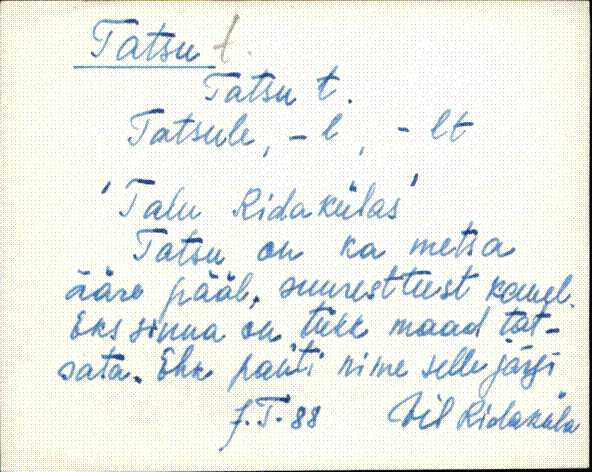 Tatsu t.
Tatsu t.
Tatsule, -l, -lt
'Talu Ridakülas'
Tatsu on ka metsa
ääre pääl, suurest teest kaugel.
Eks sinna on tükk maad tat-
sata. Ehk panti nime selle järgi
J.T. 88 Vil Ridaküla